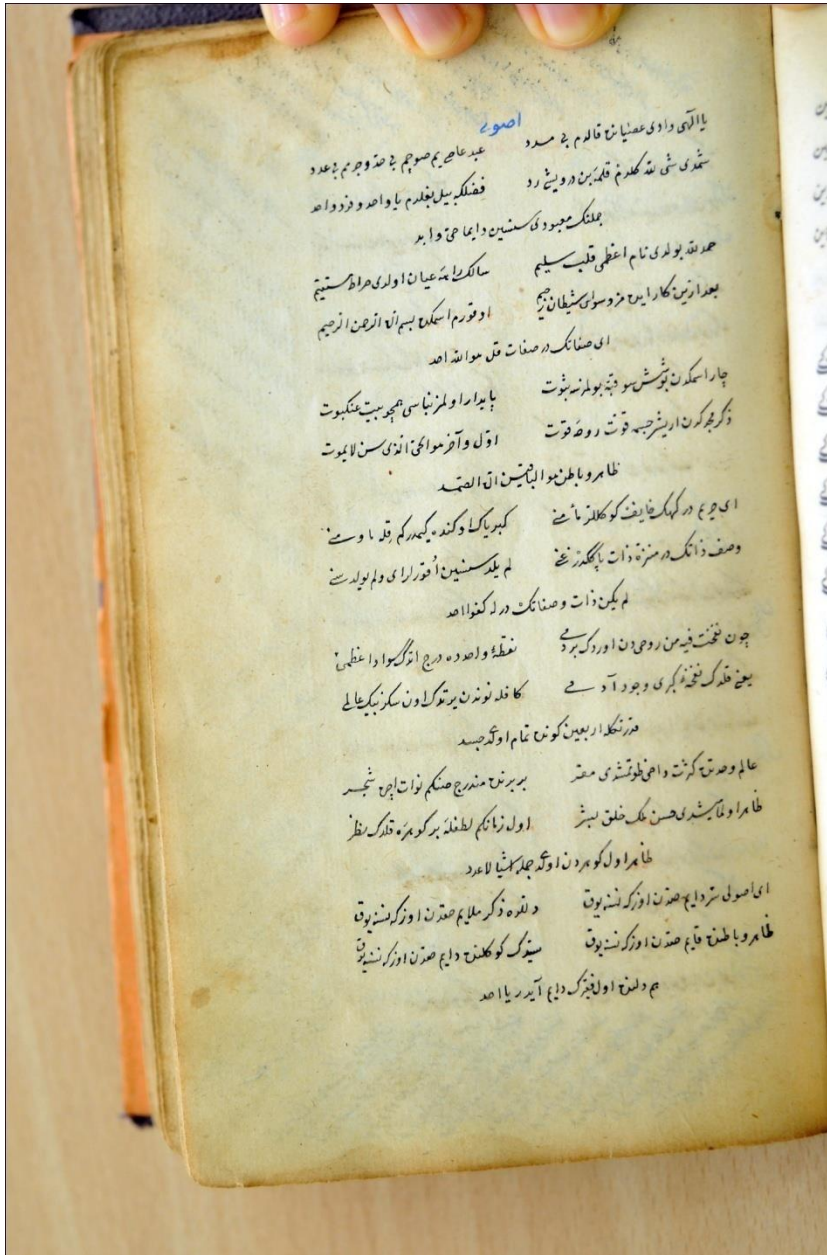 اصولی
يا الهی وادی عصيانده قالدم بی مدد عبد عاصی يم صوچم بی حد و جرمم بی عدد
شمدی شیء لله کلدم قلمه بن درويشی رد فضلکه بيل بغلدم يا واحد و فرد واحد
جمله‌نک معبودی سنسين دايما حی و ابد
حمد لله بولدی نام اعظمی قلب سليم سالک راهه عيان اولدی صراط مستقيم
بعد ازين کار ايلمز وسواس شيطان رجيم اوقورم اسمکده بسم الله الرحمن الرحيم
ای صفاتک در صفات قل هو الله احد
چار اسمکدن بو شش سو قبه بولمدنه ثبوت پايدار اولمز بناسی همچو بيت عنکبوت
ذکر مجدکدن اريشر جسمه قوت روحه قوت اول و آخر هو الحی الذی سن لا يموت
ظاهر و باطن هو الباقيسين الله الصمد
ای چريم درکهک خايف کوکللر مأمنی کبرياک اوکنده کيمدرکم قله ما و منی
وصف ذاتکدر منزه ذات پاککدر غنی لم يلد سنسين اوقورلر ای و لم يولد سنی
لم يکن ذات و صفاتکدر له کفوا احد
چون نفخت فيه من روحی دن اوردک بر دمی نقطهٔ واحدده درج اتدک سواد اعظمی
يعنی قلدک نفخهٔ کبری وجود آدمی کاف له نوندن يرتدک اون سکز بيک عالمی
قدرتکله اربعين کونده تمام اولدی جسد
عالم وحدتده کثرت داخی طوتمشدی مقر بربرنده مندرج صنکم نوات ايچره شجر
ظاهر اولمامشدی حسن ملک خلق بشر اول زمانکم لطفله بر کوهره قلدک نظر
ظاهر اول کوهردن اولدی جمله اشيا لا عدد
ای اصولی سر دايم حقدن اوزکه نسنه يوق دلده ذکر ملايم حقدن اوزکه نسنه يوق
ظاهر و باطنده قايم حقدن اوزکه نسنه يوق سيدک کوکلنده دايم حقدن اوزکه نسنه يوق
هم دلنده اول فقيرک دايم آيدر يا احد